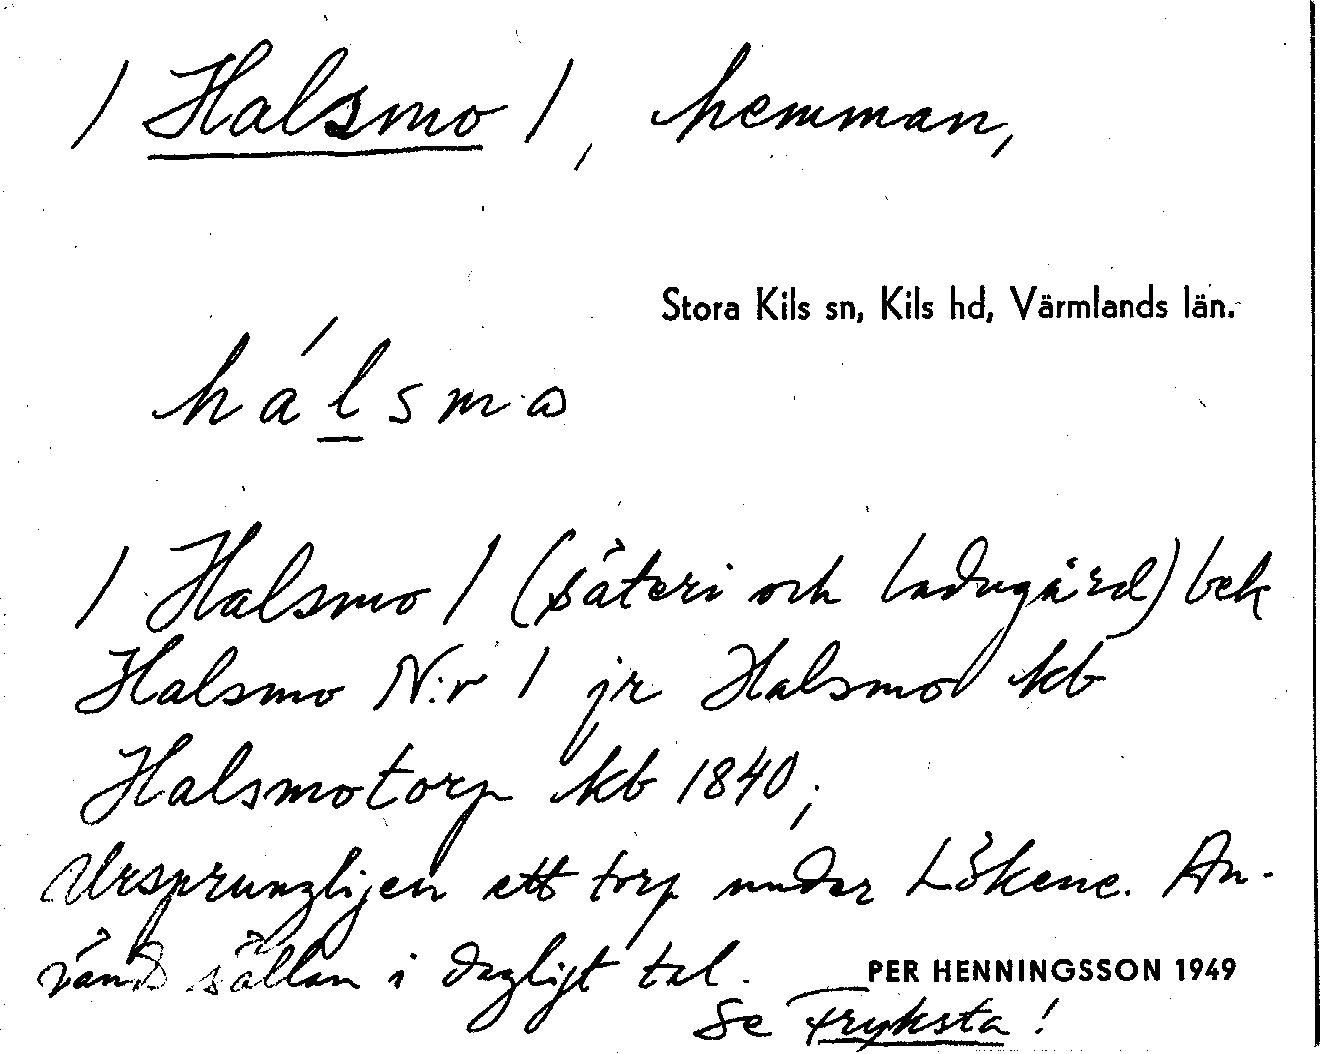 / Halsmo /, hemman,
Stora Kils sn, Kils hd, Värmlands län.
hálsmo
/ Halsmo / (säteri och ladugård) bek
Halsmo N:r 1 jr Halsmo kb
Halsmotorp kb 1840;
Ursprungligen ett torp under Lökene. An-
vänd sällan i dagligt tal.
PER HENNINGSSON 1949
Se Fryksta!